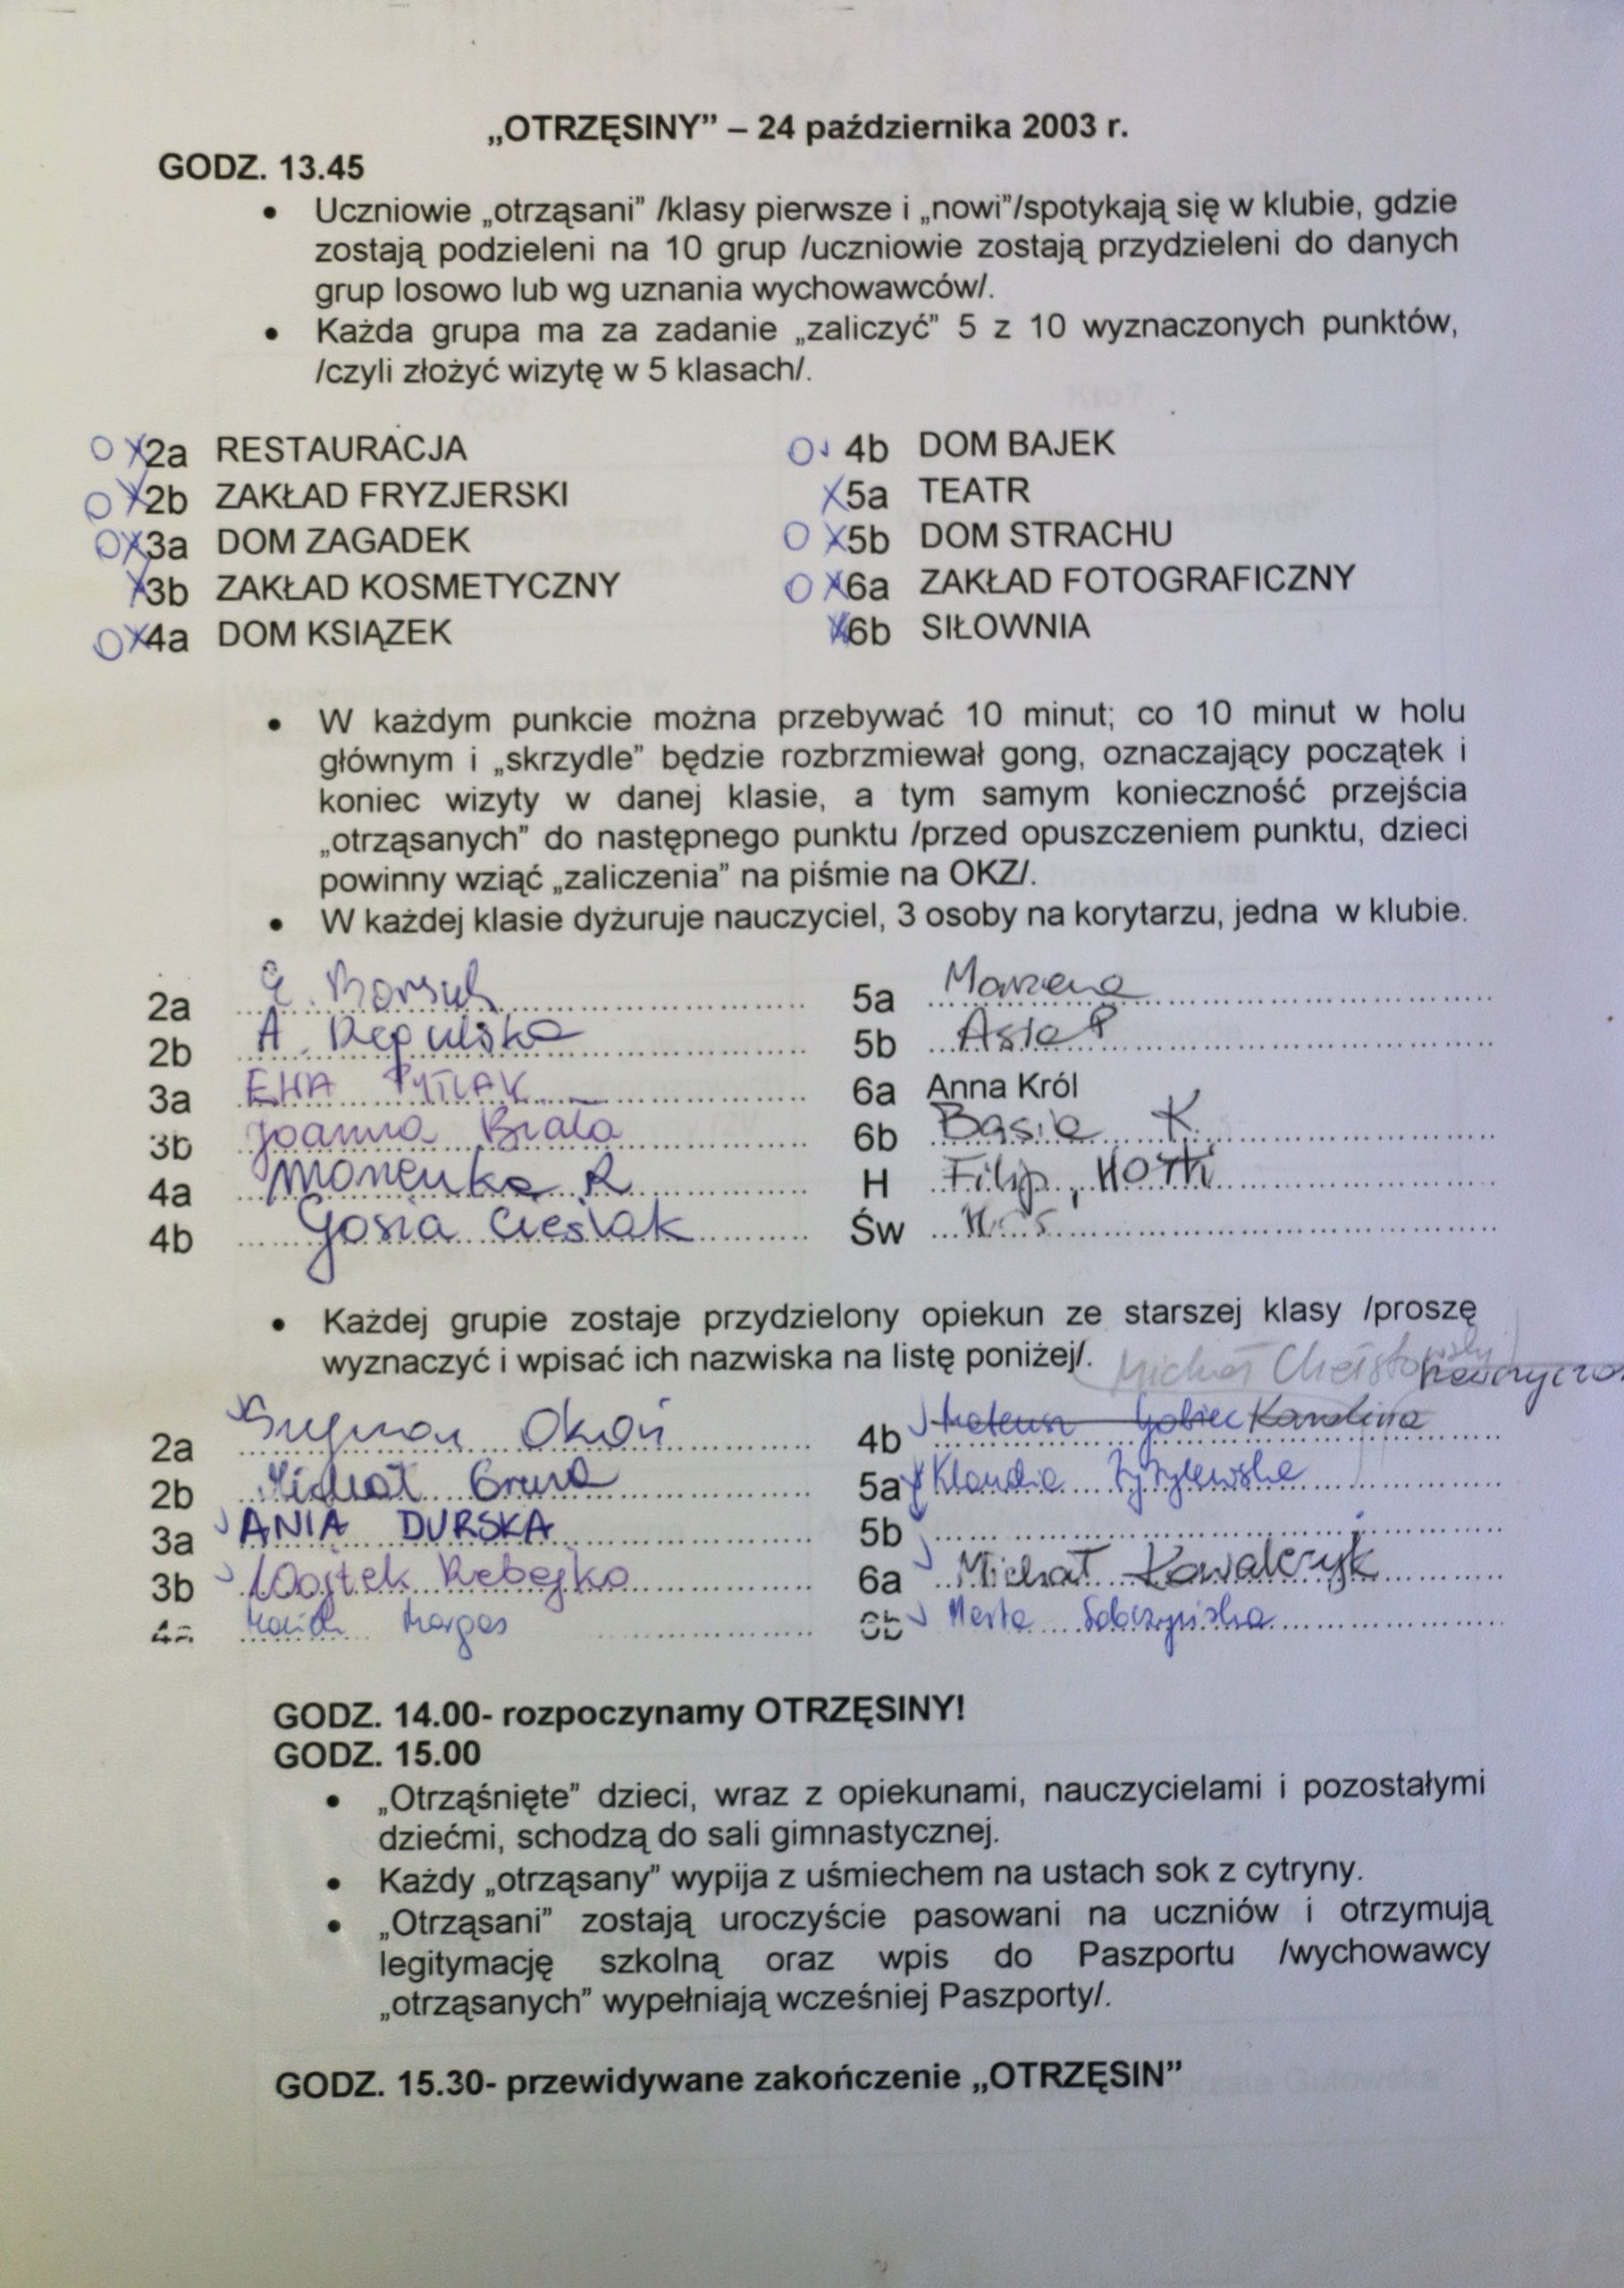 „OTRZĘSINY” – 24 października 2003 r.
GODZ. 13.45
• Uczniowie „otrząsani” /klasy pierwsze i „nowi”/spotykają się w klubie, gdzie
zostają podzieleni na 10 grup /uczniowie zostają przydzieleni do danych
grup losowo lub wg uznania wychowawców/.
• Każda grupa ma za zadanie „zaliczyć” 5 z 10 wyznaczonych punktów,
/czyli złożyć wizytę w 5 klasach/.
2a RESTAURACJA
2b ZAKŁAD FRYZJERSKI
3a DOM ZAGADEK
3b ZAKŁAD KOSMETYCZNY
4a DOM KSIĄZEK
4b DOM BAJEK
5a TEATR
5b DOM STRACHU
6a ZAKŁAD FOTOGRAFICZNY
6b SIŁOWNIA
• W każdym punkcie można przebywać 10 minut; co 10 minut w holu
głównym i „skrzydle” będzie rozbrzmiewał gong, oznaczający początek i
koniec wizyty w danej klasie, a tym samym konieczność przejścia
„otrząsanych” do następnego punktu /przed opuszczeniem punktu, dzieci
powinny wziąć „zaliczenia” na piśmie na OKZ/.
• W każdej klasie dyżuruje nauczyciel, 3 osoby na korytarzu, jedna w klubie.
2a
2b A.
3a
3b Joanna Biała
4a R
4b Gosia Cieślak
5a Marzena
5b Asia P
6a Anna Król
6b Basia K.
H Filip,
Św
• Każdej grupie zostaje przydzielony opiekun ze starszej klasy /proszę
wyznaczyć i wpisać ich nazwiska na listę poniżej/.
Michał
2a Okoń
2b Michał
3a ANIA DURSKA
3b Wojtek
4a
4b Mateusz Karolina
5a Klaudia
5b
6a Michał Kowalczyk
6b Marta Sobczyńska
GODZ. 14.00- rozpoczynamy OTRZĘSINY!
GODZ. 15.00
• „Otrząśnięte” dzieci, wraz z opiekunami, nauczycielami i pozostałymi
dziećmi, schodzą do sali gimnastycznej.
• Każdy „otrząsany” wypija z uśmiechem na ustach sok z cytryny.
• „Otrząsani” zostają uroczyście pasowani na uczniów i otrzymują
legitymację szkolną oraz wpis do Paszportu /wychowawcy
„otrząsanych” wypełniają wcześniej Paszporty/.
GODZ. 15.30- przewidywane zakończenie „OTRZĘSIN”